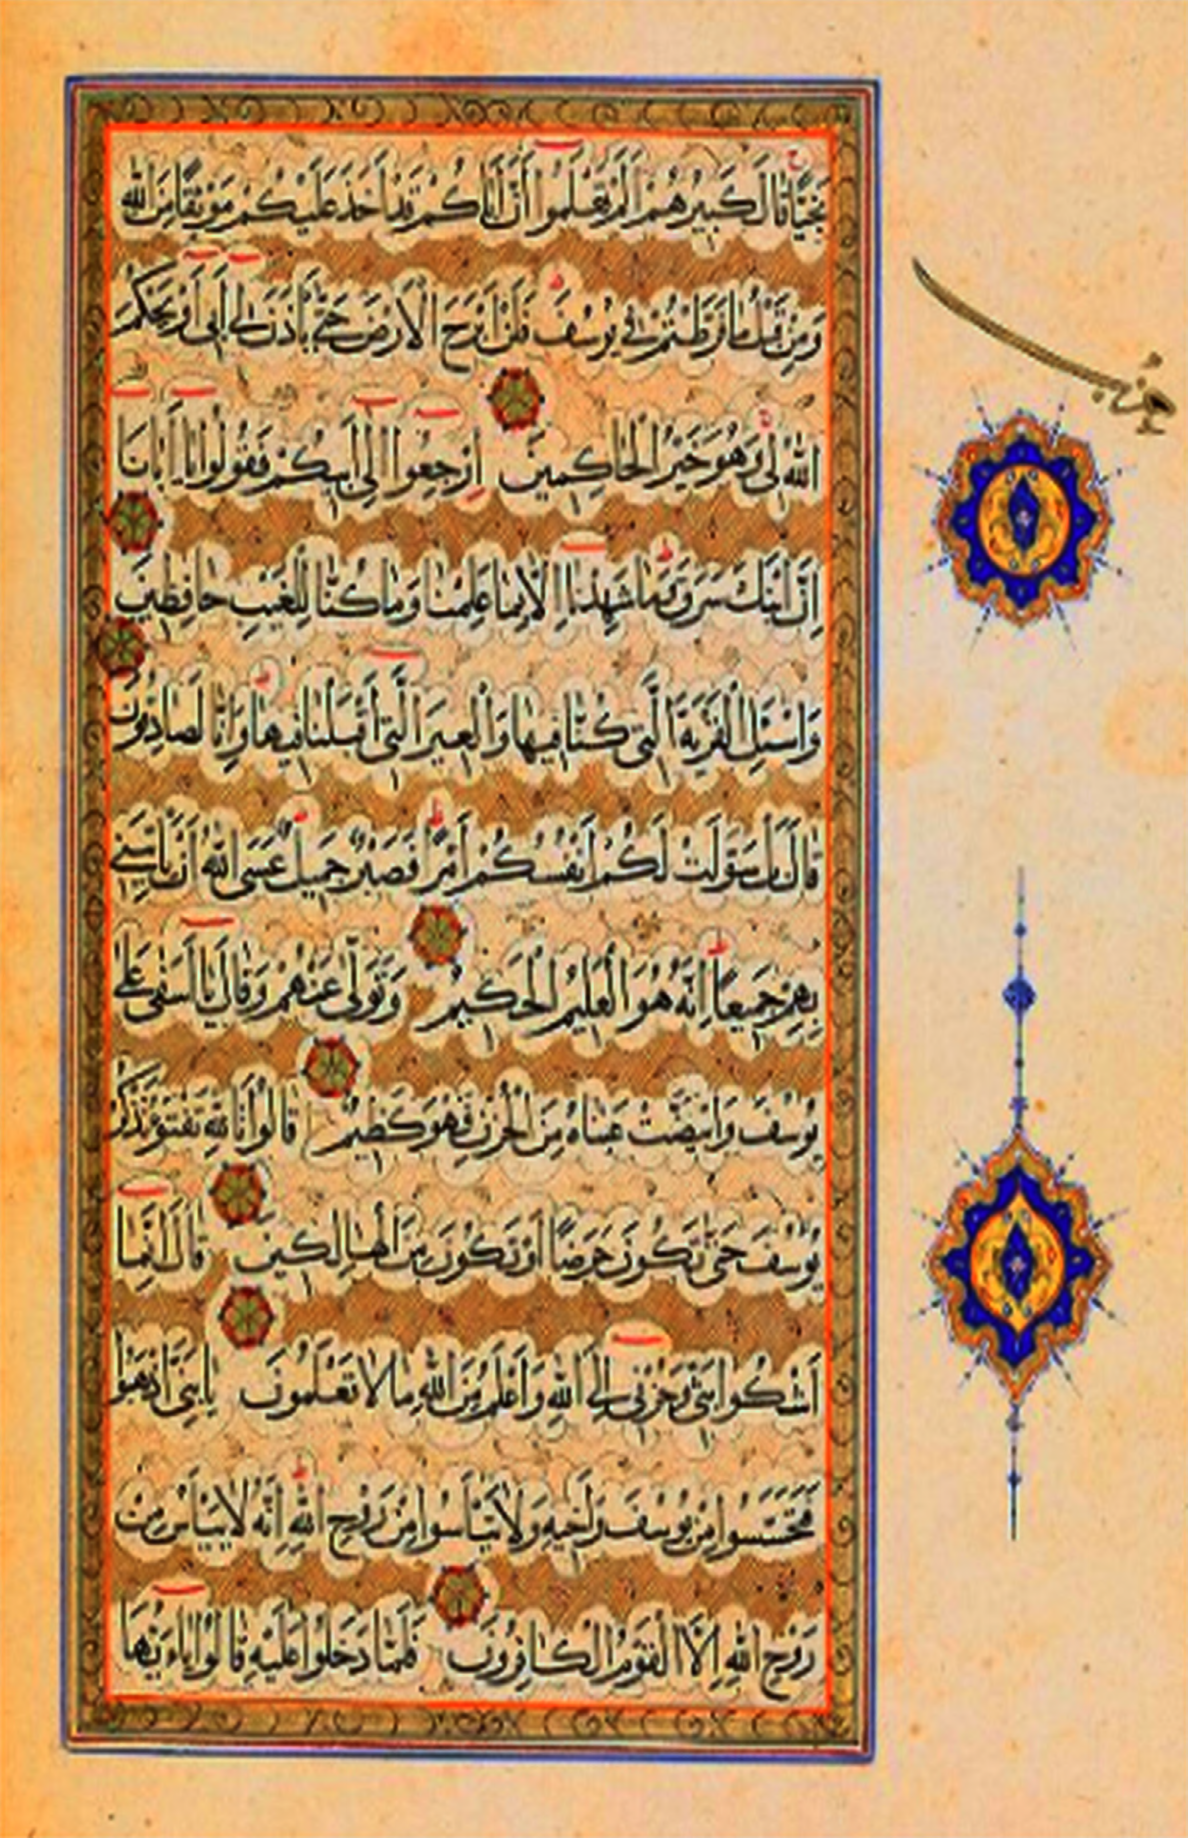 نَجِيًّا قَالَ كَبِيرُهُمْ اَلَمْ تَعْلَمُوا اَنَّ اَبَاكُمْ قَدْ اَخَذَ عَلَيْكُمْ مَوْثِقًا مِنَ اللّٰهِ
وَمِنْ قَبْلُ مَا فَرَّطْتُمْ فِي يُوسُفَ فَلَنْ اَبْرَحَ الْاَرْضَ حَتّٰى يَاْذَنَ لِي اَبِي اَوْ يَحْكُمَ
اللّٰهُ لِي وَهُوَ خَيْرُ الْحَاكِمِينَ اِرْجِعُوا اِلٰى اَبِيكُمْ فَقُولُوا يَا اَبَانَا
اِنَّ ابْنَكَ سَرَقَ وَمَا شَهِدْنَا اِلَّا بِمَا عَلِمْنَا وَمَا كُنَّا لِلْغَيْبِ حَافِظِينَ
وَاسْئَلِ الْقَرْيَةَ الَّتِي كُنَّا فِيهَا وَالْعِيرَ الَّتِي اَقْبَلْنَا فِيهَا وَاِنَّا لَصَادِقُونَ
قَالَ بَلْ سَوَّلَتْ لَكُمْ اَنْفُسُكُمْ اَمْرًا فَصَبْرٌ جَمِيلٌ عَسَى اللّٰهُ اَنْ يَاْتِيَنِي
بِهِمْ جَمِيعًا اِنَّهُ هُوَ الْعَلِيمُ الْحَكِيمُ وَتَوَلّٰى عَنْهُمْ وَقَالَ يَا اَسَفٰى عَلٰى
يُوسُفَ وَابْيَضَّتْ عَيْنَاهُ مِنَ الْحُزْنِ فَهُوَ كَظِيمٌ قَالُوا تَاللّٰهِ تَفْتَؤُا تَذْكُرُ
يُوسُفَ حَتّٰى تَكُونَ حَرَضًا اَوْ تَكُونَ مِنَ الْهَالِكِينَ قَالَ اِنَّمَا
اَشْكُوا بَثِّي وَحُزْنِي اِلَى اللّٰهِ وَاَعْلَمُ مِنَ اللّٰهِ مَا لَا تَعْلَمُونَ يَا بَنِيَّ اذْهَبُوا
فَتَحَسَّسُوا مِنْ يُوسُفَ وَاَخِيهِ وَلَا تَيْاَسُوا مِنْ رَوْحِ اللّٰهِ اِنَّهُ لَا يَيْاَسُ مِنْ
رَوْحِ اللّٰهِ اِلَّا الْقَوْمُ الْكَافِرُونَ فَلَمَّا دَخَلُوا عَلَيْهِ قَالُوا يَا اَيُّهَا
حزب